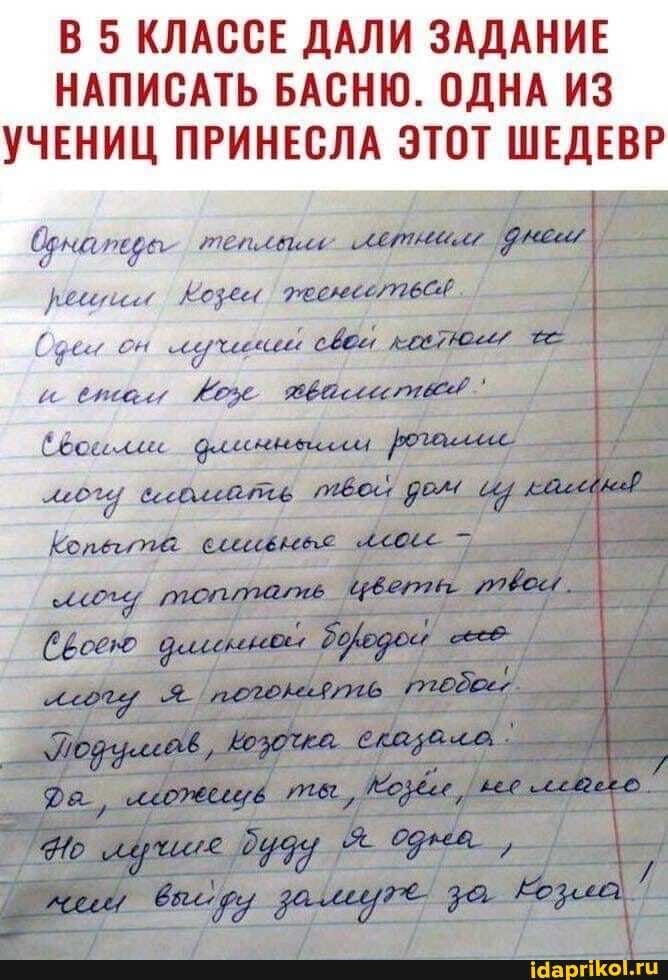 В 5 КЛАССЕ ДАЛИ ЗАДАНИЕ
НАПИСАТЬ БАСНЮ. ОДНА ИЗ
УЧЕНИЦ ПРИНЕСЛА ЭТОТ ШЕДЕВР
Однажды теплым летним днем
решил Козел жениться.
Одел он лучший свой костюм и
и стал Козе хвалиться:
Своими длинными рогами
могу сломать твой дом из камня
Копыта сильные мои –
могу топтать цветы твои.
Своею длинной бородой мо
могу я погонять тобой.
Подумав, Козочка сказала:
Да, можешь ты, Козёл, не мало!
Но лучше буду я одна,
чем выйду замуж за Козла!
idaprikol.ru